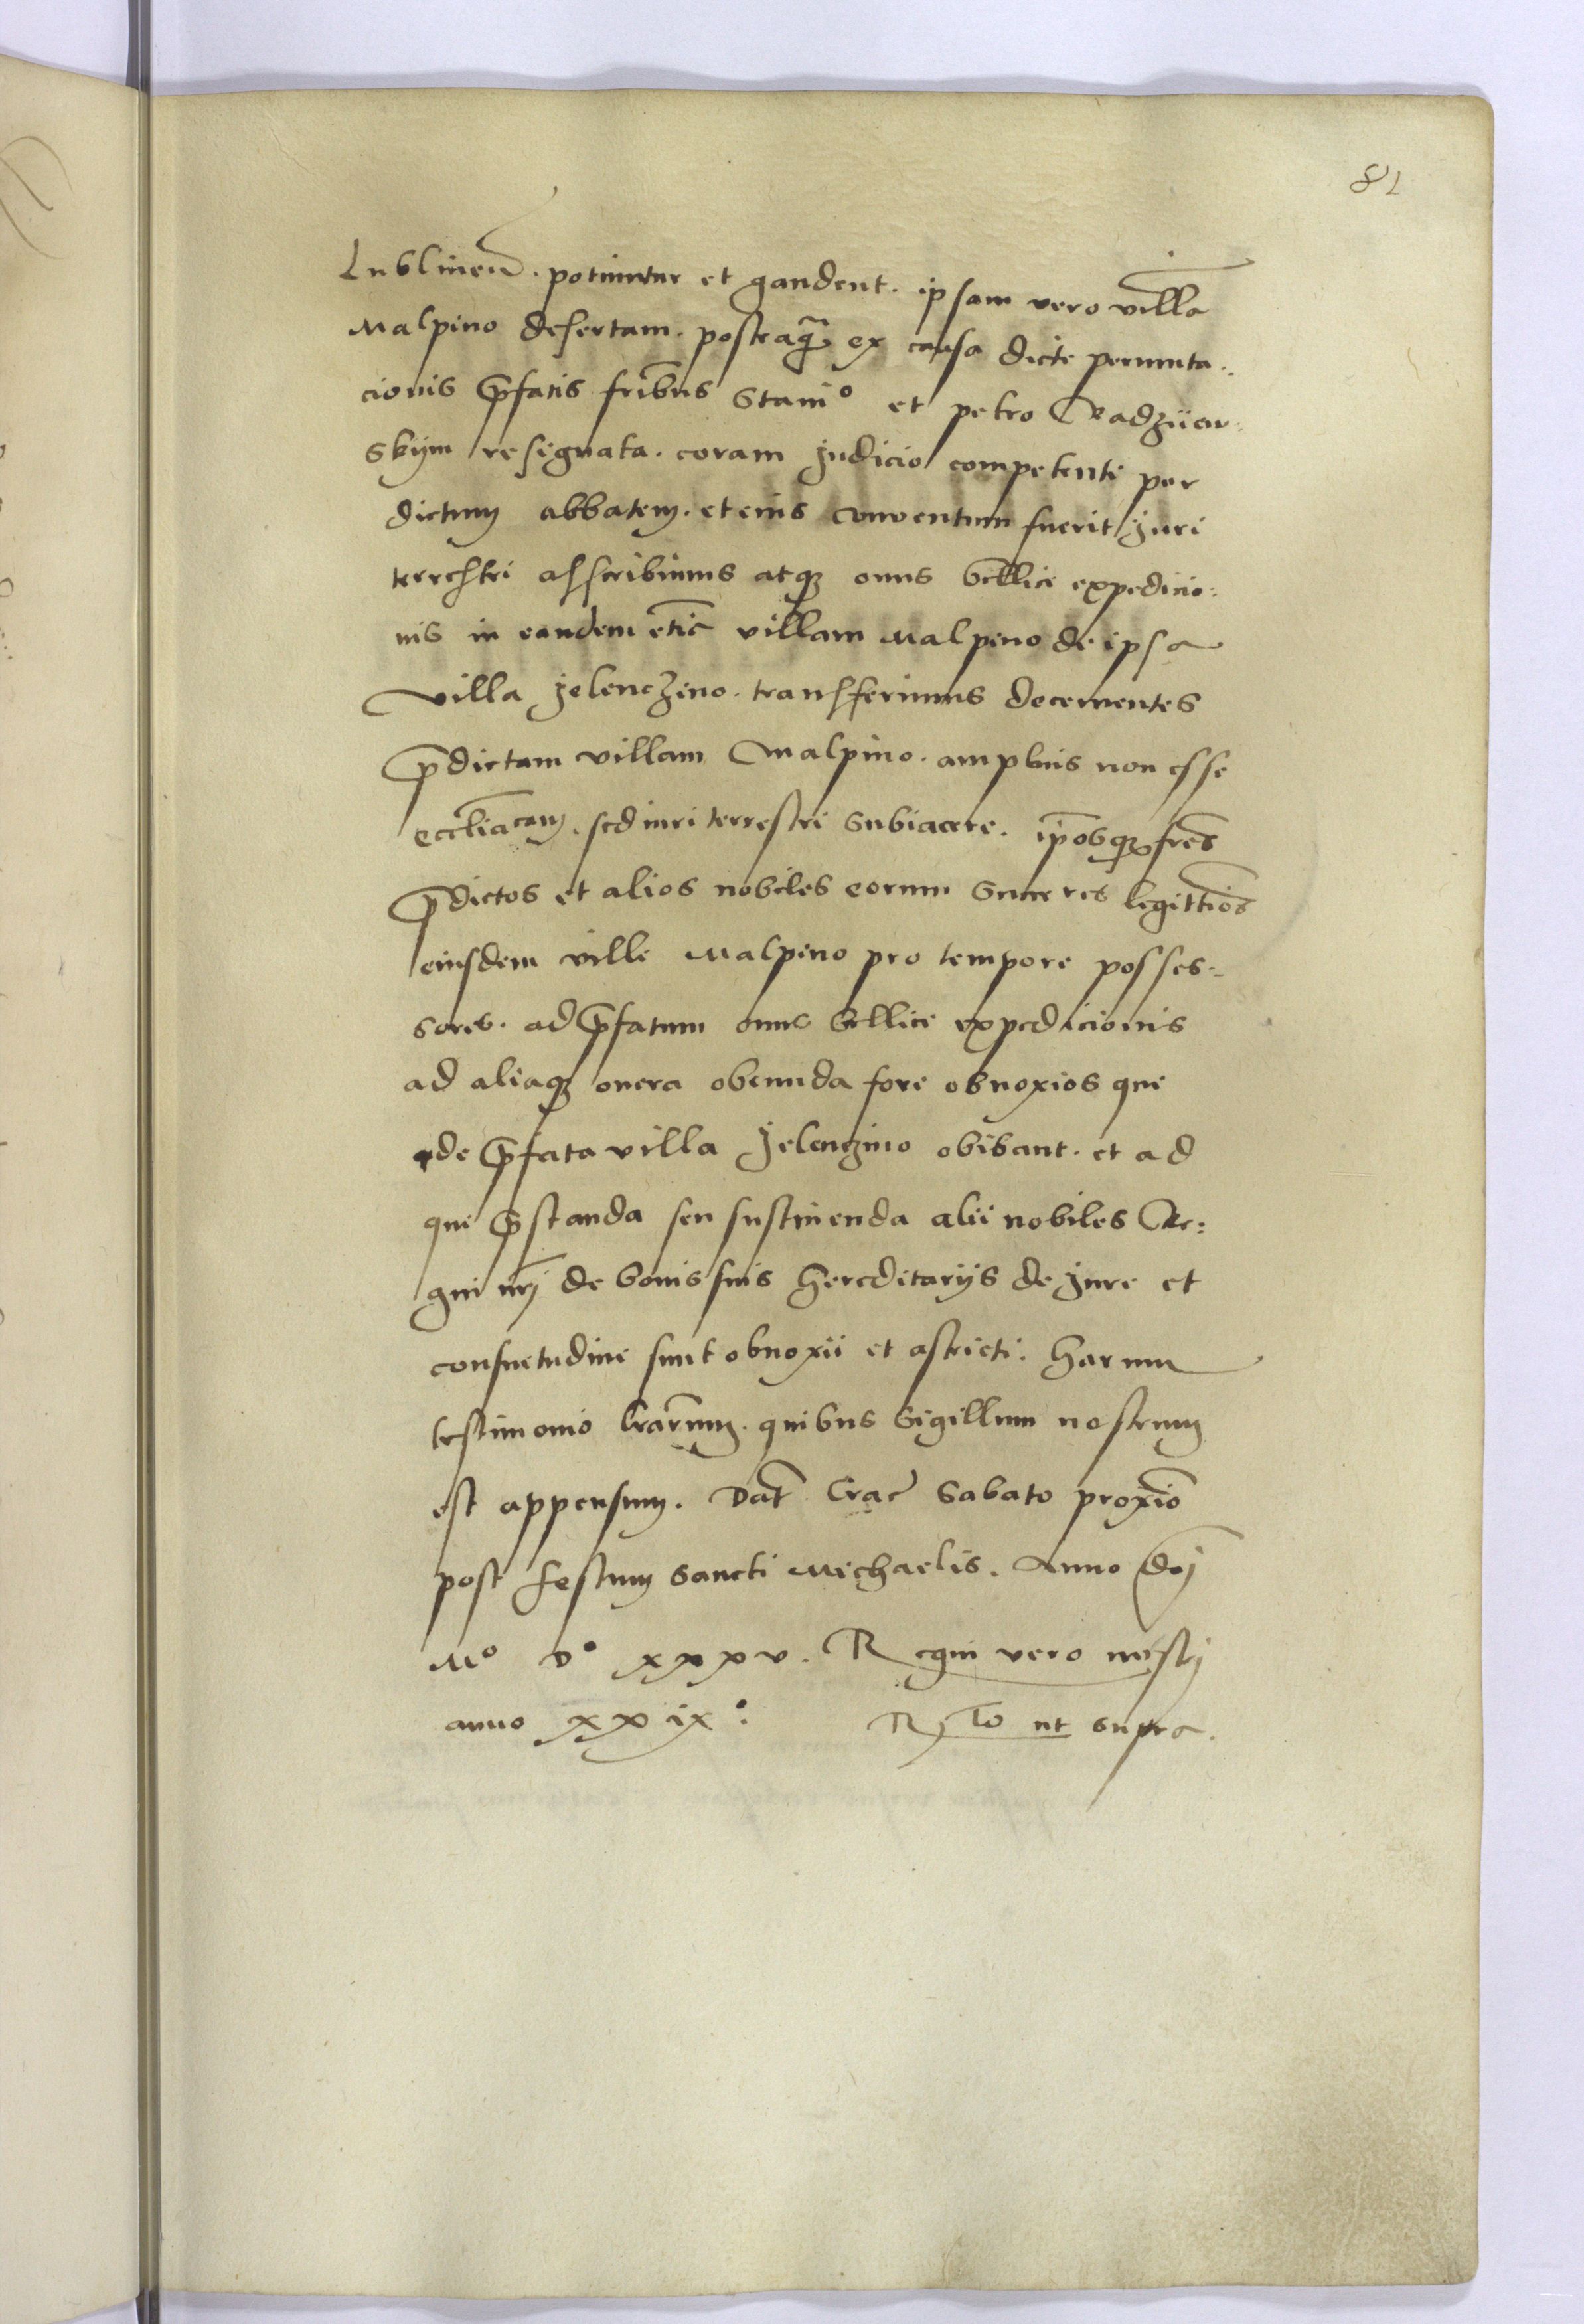 81
Lublinen̄. potiuntur et gaudent. ipsam vero villā
Malpino desertam. posteaq̄ ex causa dicte permuta..
cionis p̄fatis frībus Stanio et petro Radzÿew:
skÿm resignata. coram Judicio competente per
dictum abbatem. et eius conventum fuerit Juri
terrestri asscribimus atq̨ onus bellice expedicio:
nis in eandem etīā villam Malpino de ipsa
villa Jelenczino. transferimus decernentes
p̄dictam villam Malpino. amplius non esse
eccl̄iacam. sed iuri terrestri subiacere. ip̄osq̨ fres̄
p̄dictos et alios nobiles eorum succ̄res legittīos
eiusdem ville Malpino pro tempore posses-
sores. ad p̄fatum onus bellice expedicionis
ad aliaq̨ onera obeunda fore obnoxios que
de p̄fata villa Jelenczino obibant. et ad
que p̄standa seu sustinenda alii nobiles Re:
gni nr̄j de bonis suis hereditarÿs de Jure et
consuetudine sunt obnoxii et astricti. harum
testimonio l̄rarum. quibus Sigillum nostrum
est appensum. Dat̄ Crac̄ Sabato proxīo
post festum Sancti Michaelis. Anno dn̄j
Mo vo xxxv. Regni vero nostrj
anno xxixo: R̄̄to ut supra.